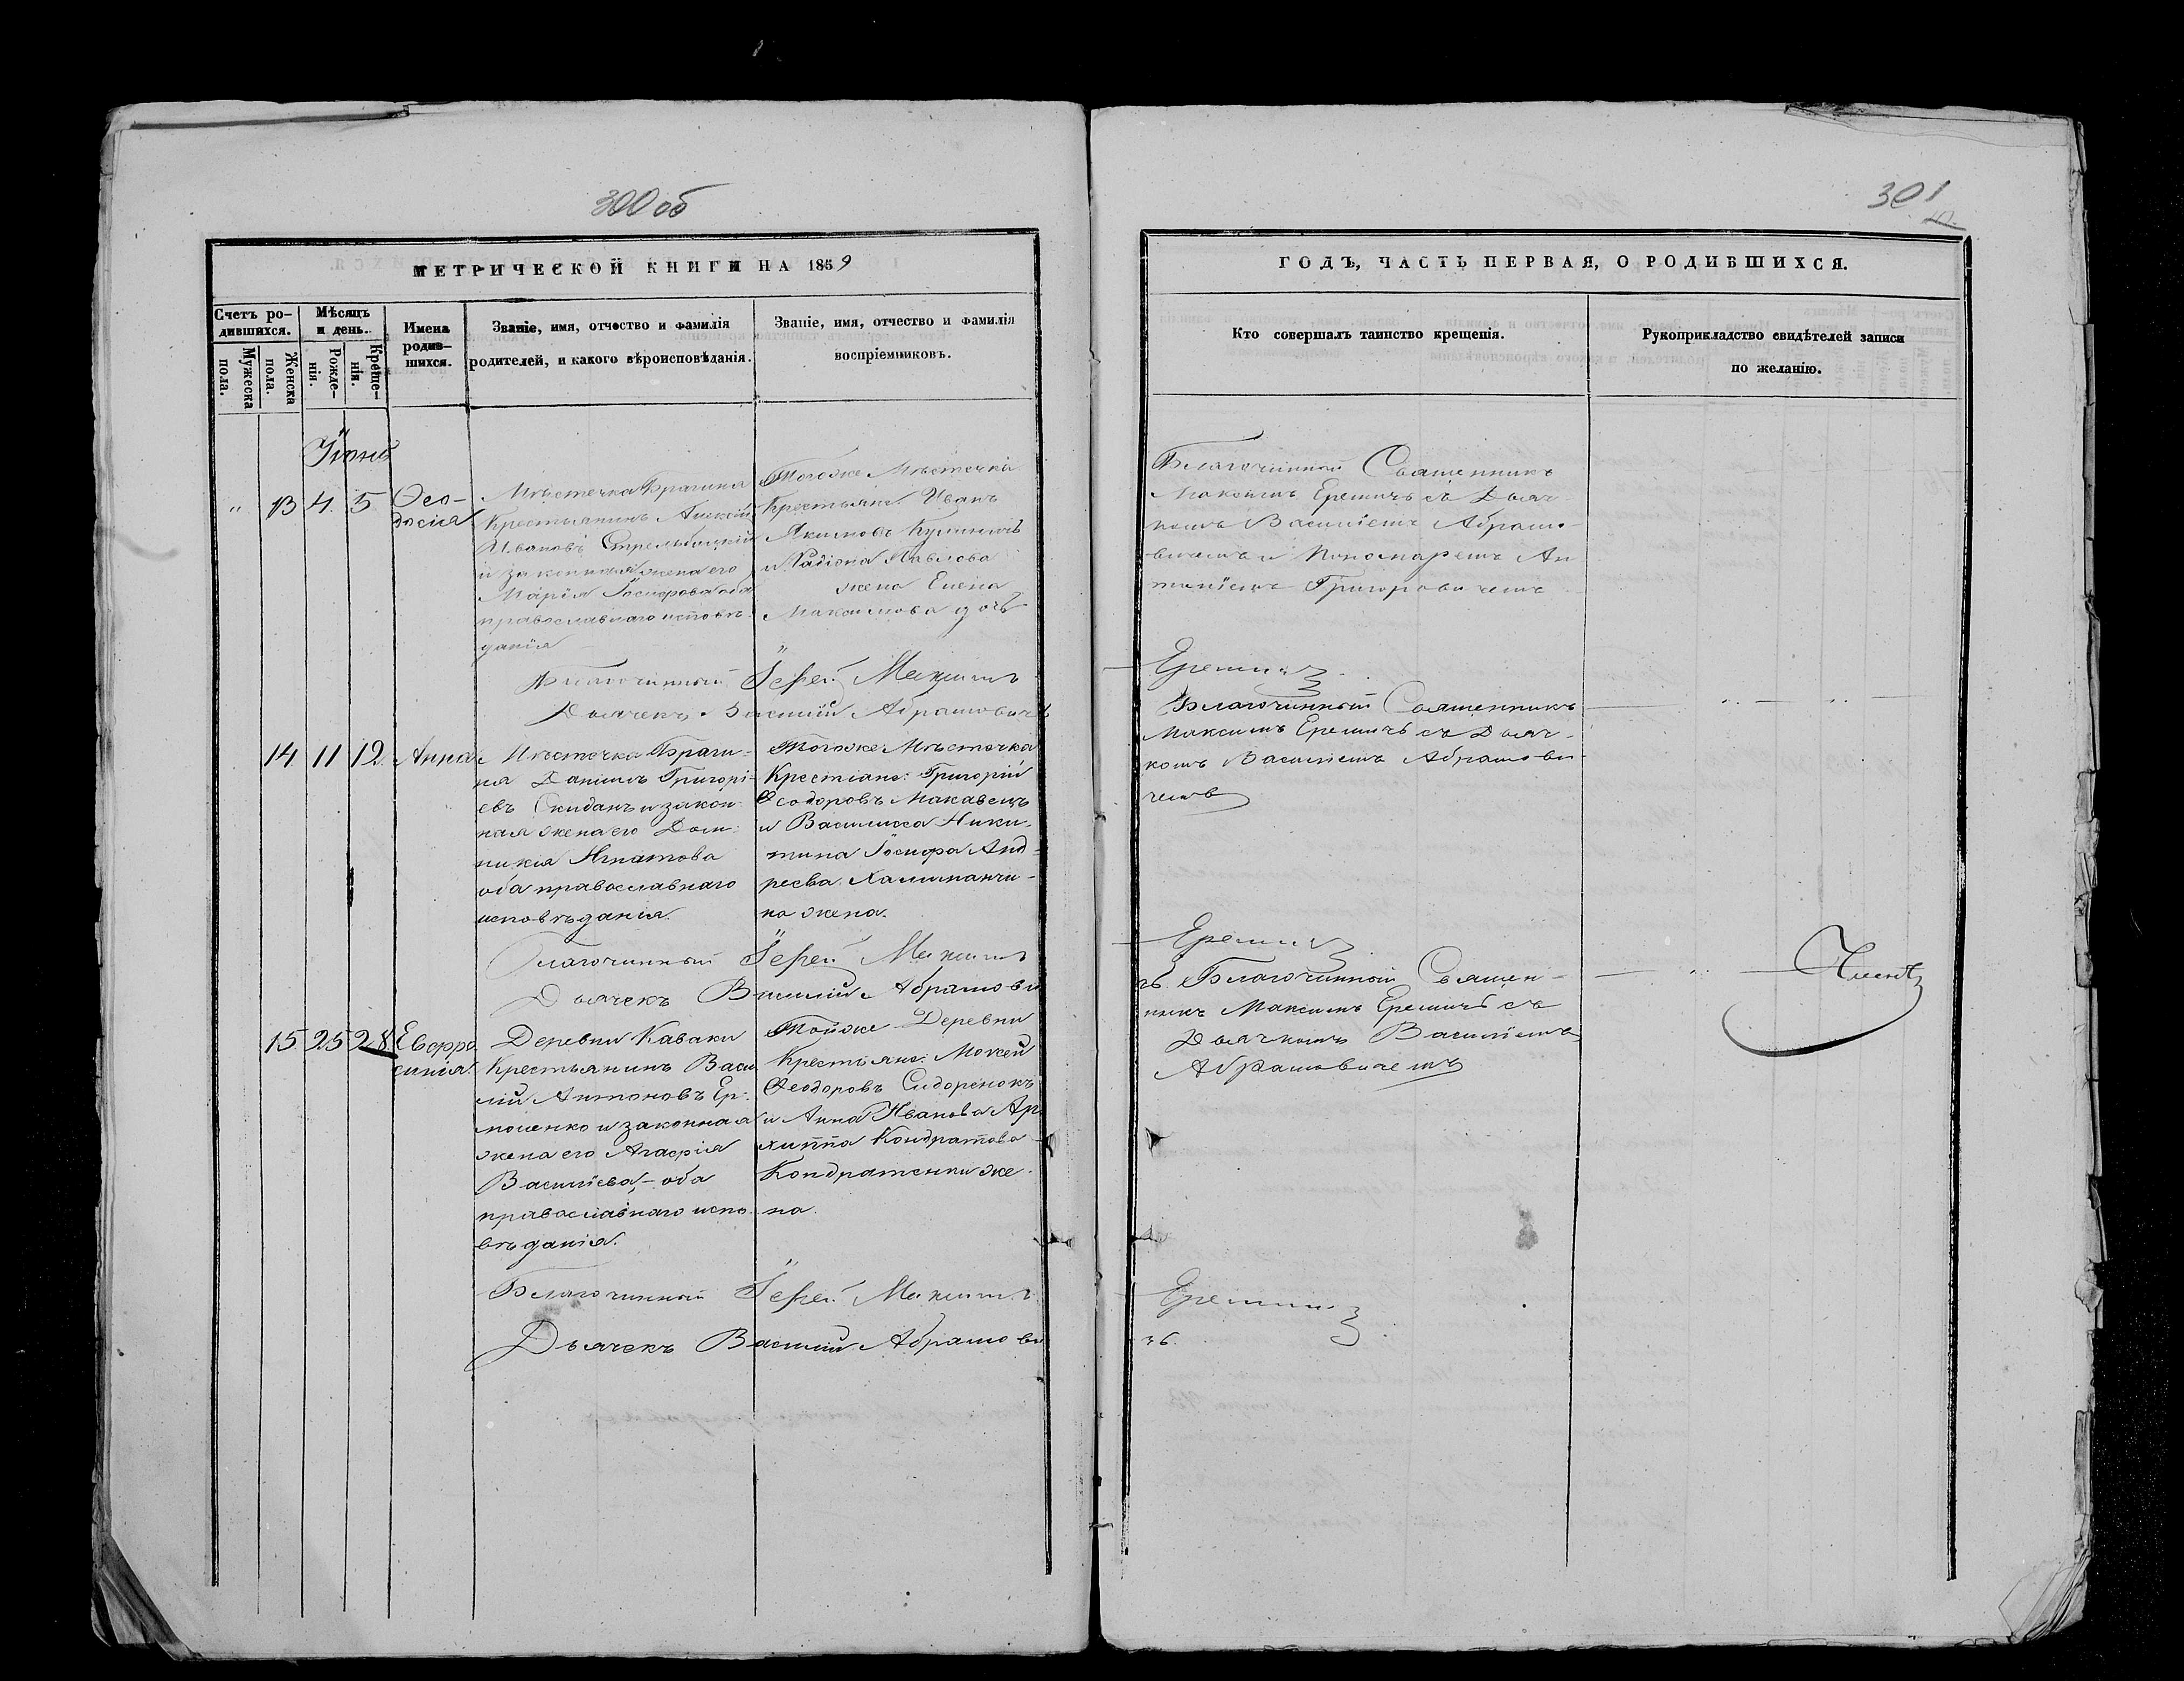 300 об
301
МЕТРИЧЕСКОЙ КНИГИ НА 1859
Счетъ ро-
дившихся.
Мужеска
пола.
Женска
пола.
Мѣсяцъ
и день.
Рожде-
нія.
Креще-
нія.
Имена
родив-
шихся.
Званіе, имя, отчество и фамилія
родителей, и какого вѣроисповѣданія.
Званіе, имя, отчество и фамилія
воспріемниковъ.
Іюнь
" 13 4. 5 Ѳео-
досія
Мѣстечка Брагина
Крестьянинъ Алексій
Ивановъ Стрельбицкій
и законная жена его
Марія Іосифова оба
православнаго исповѣ-
данія
Тогоже Мѣстечка
Крестьяне: Иванъ
Якимовъ
и Радіона Павлова
жена Елена
Максимова дочь
Благочинный Іерей Максимъ
Дьячекъ Василій Абрамовичъ
14. 11 12. Анна
Мѣстечка Браги-
на Даніилъ Григорі-
евъ Скиданъ и закон-
ная жена его Дом-
никія Игнатова
оба православнаго
исповѣданія.
Тогоже Мѣстечка
Крестіане: Григорій
Ѳеодоровъ Макавецъ
и Василисса Ники-
тина Іосифа Анд-
реева
на жена.
Благочинный Іерей Максимъ
Дьячекъ Василій Абрамови
15 25 28 Евфро
синія
Деревни Каваки
Крестьянинъ Васи
лій Антоновъ Ер-
моленко и законная
жена его Агафія
Василіева, - оба
православнаго испо-
вѣданія.
Тойже Деревни
Крестьяне: Мокей
Ѳеодоровъ Сидоренокъ
и Анна Иванова Ар
хиппа Кондратова
Кондратенки же-
на.
Благочинный Іерей Максимъ
Дьячекъ Василій Абрамови
ГОДЪ, ЧАСТЬ ПЕРВАЯ, О РОДИВШИХСЯ.
Кто совершалъ таинство крещенія.
Рукоприкладство свидѣтелей записи
по желанію.
Благочинный Священникъ
Максимъ Еремичъ съ Дьяч-
комъ Василіемъ Абрамо-
вичемъ и Пономаремъ Ан-
тоніемъ Григоровичемъ
Еремичъ
Благочинный Священникъ
Максимъ Еремичъ съ Дьяч-
комъ Василіемъ Абрамови-
чемъ
Еремичъ
чъ. Благочинный Священ-
никъ Максимъ Еремичъ съ
Дьячкомъ Василіемъ
Абрамовичемъ
Еремичъ
чъ.